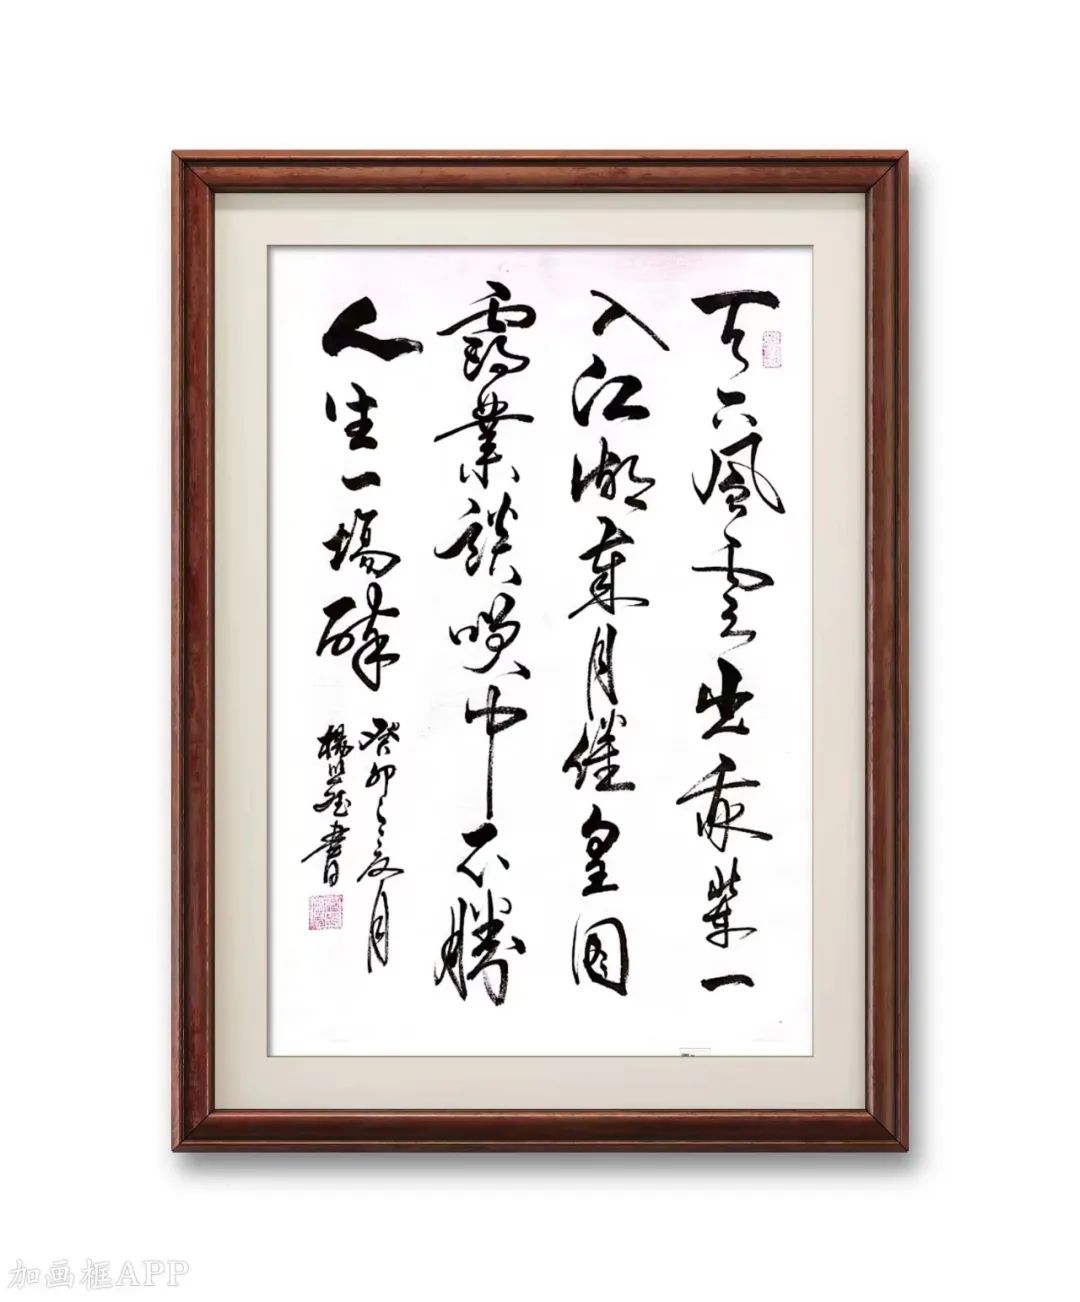 天下風雲出我輩一
入江湖歲月催皇圖
霸業談咲中不勝
人生一場醉
癸卯之夏月
楊書
加画框APP